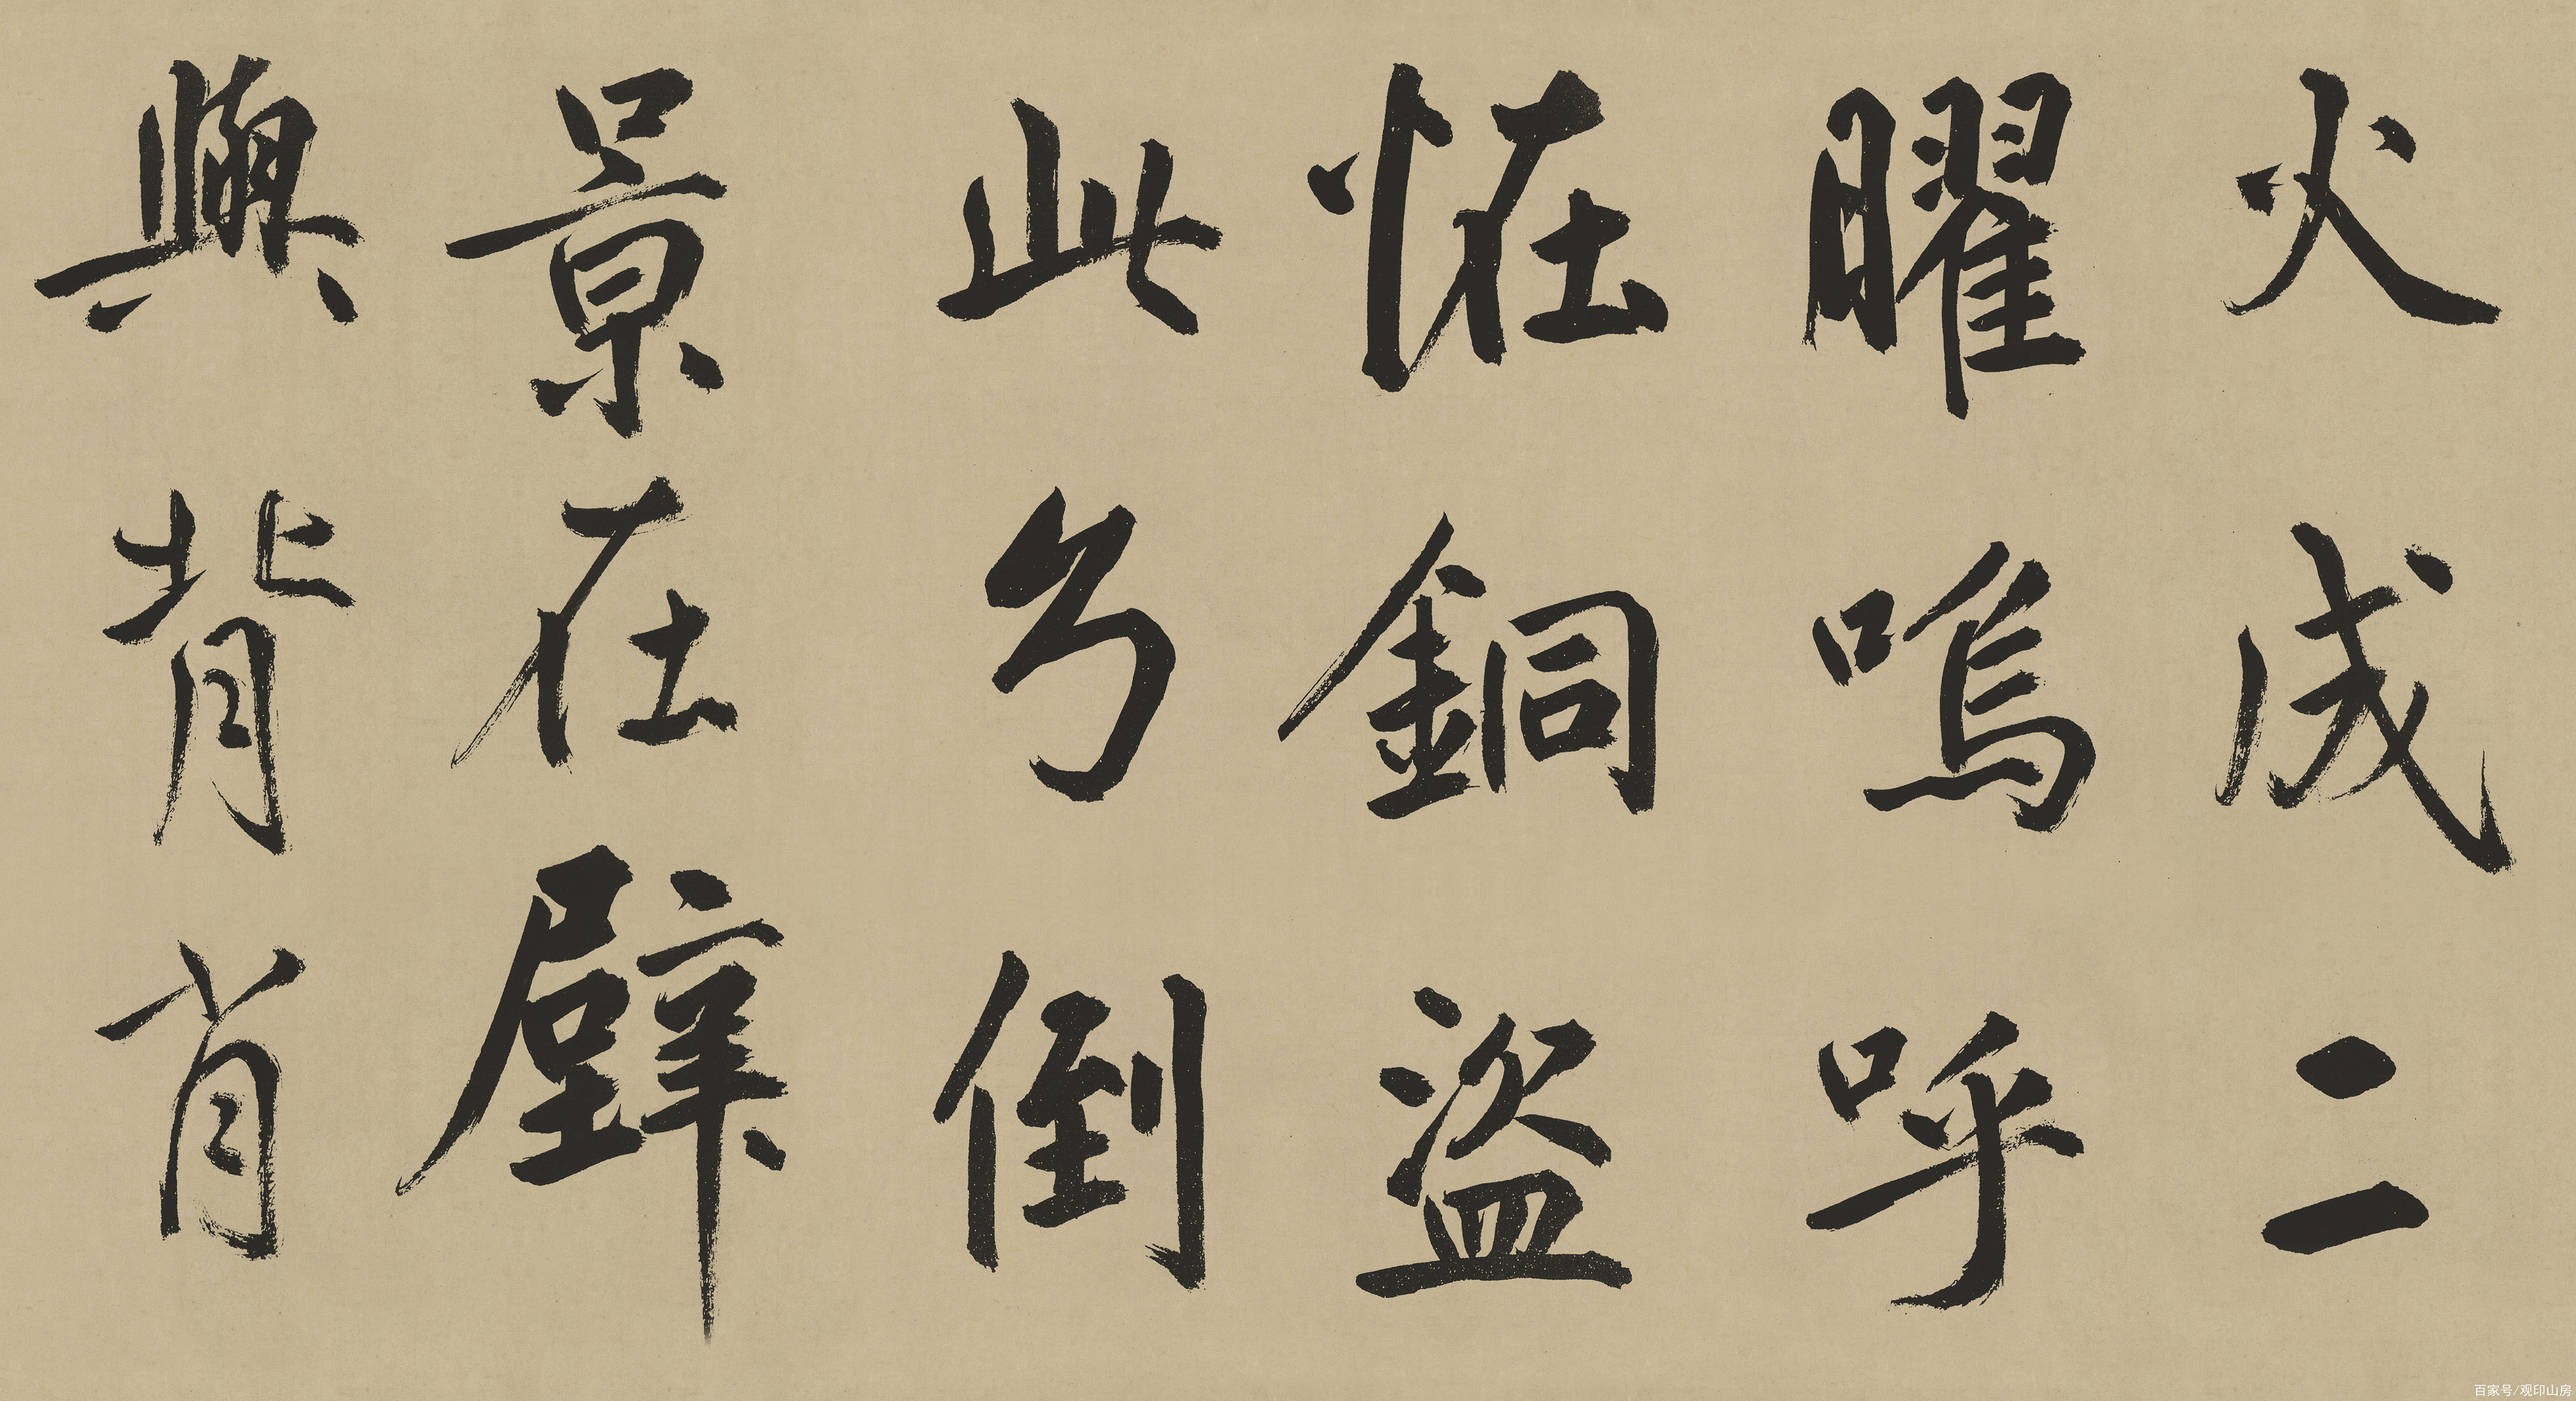 火成二
曜嗚呼
恠銅盜
此倒
景在壁
與背肖
百家号/观印山房